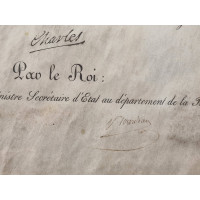 Charles
Par le Roi:
nistre Secrétaire d'Etat au département de la